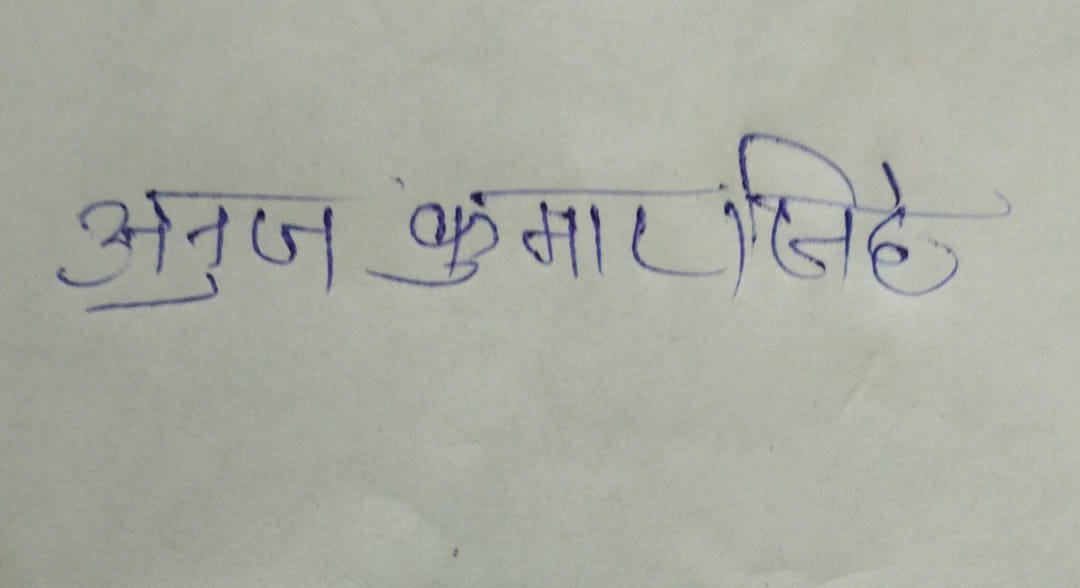 अनुज कुमार सिंह